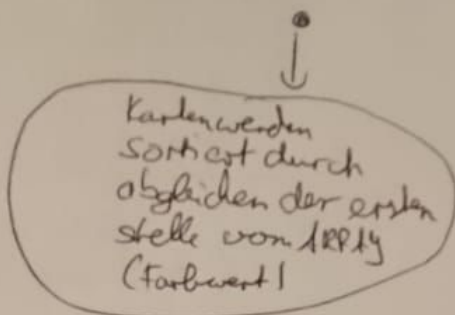 Karten werden
sortiert durch
abgleichen der ersten
stelle vom ARRAY
(Farbwert)